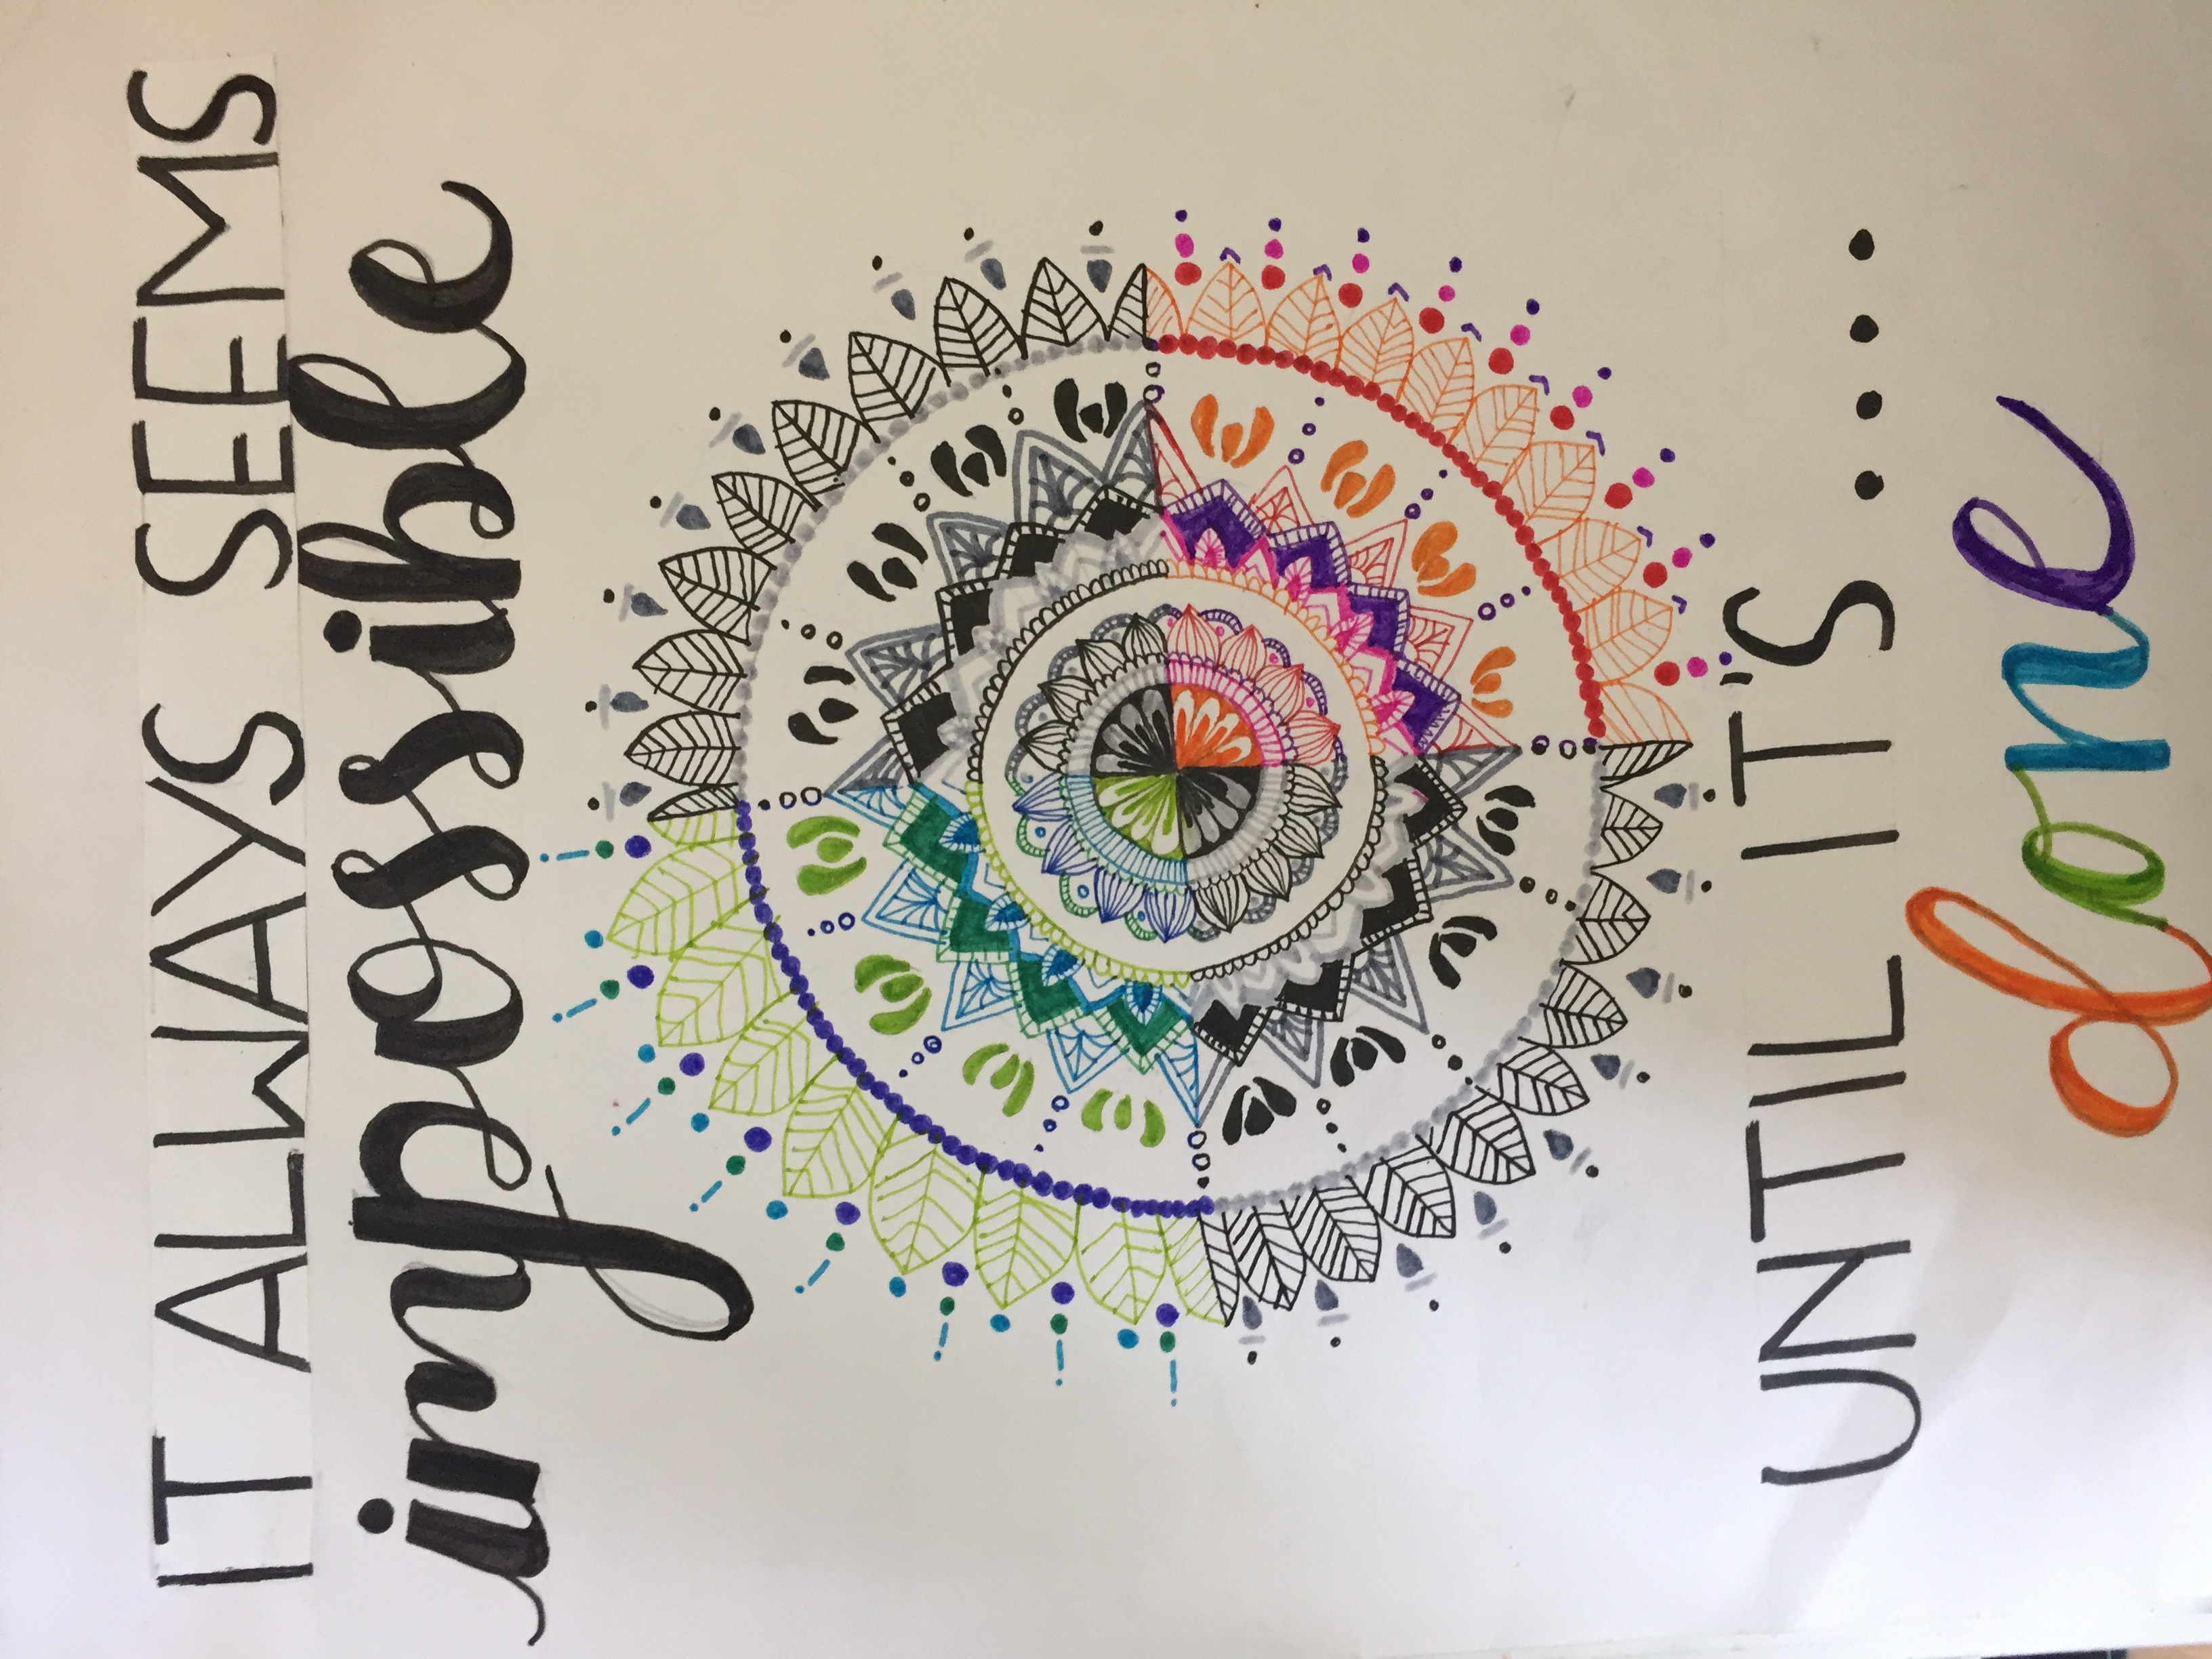 IT ALWAYS SEEMS
impossible
UNTIL IT'S....
done